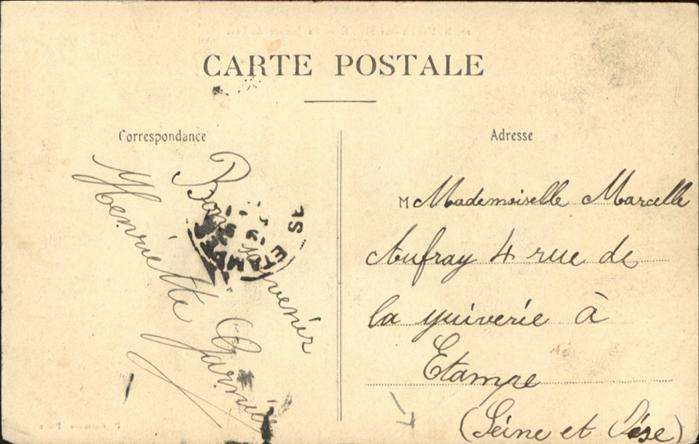 CARTE POSTALE
Correspondance
Bon souvenir
Henriette Garnier
ETAMPES
Adresse
M Mademoiselle Marcelle
Aufray 4 rue de
la yuiverie à
Etampe
(Seine et Oise)